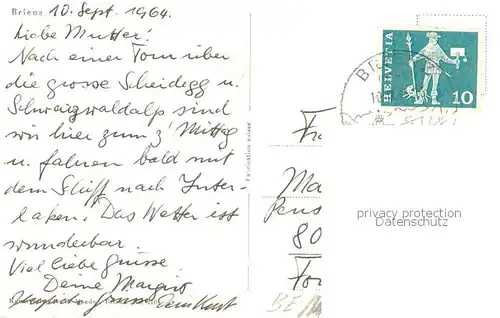 Brienz 10. Sept. 1964.
Liebe Mutter!
Nach einer Tour über
die grosse Scheidegg u.
Schwarzwaldalp sind
wir hier zum z'Mittag
u. fahren bald mit
dem Schiff nach Inter-
laken. Das Wetter ist
wunderbar.
Viel liebe Grüsse
Deine
Dein Kurt
Fabrication suisse
HELVETIA
10
BRI
Fr
Ma
Pens
80
privacy protection
Datenschutz
BE